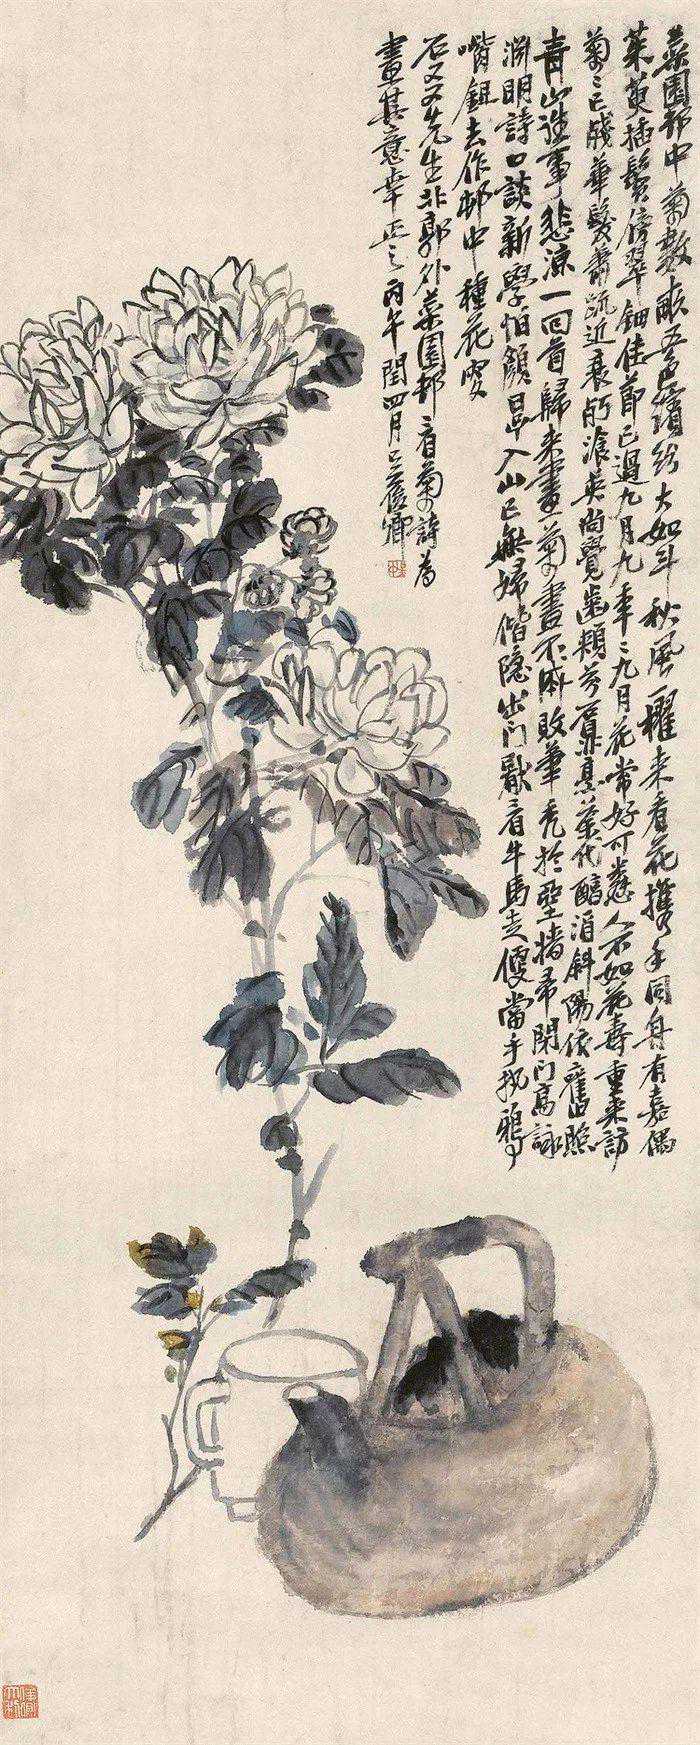 菜園邨中菊數畝五色繽紛大如斗秋風一櫂來看花攜手同舟有嘉偶
茱萸插鬢傍翠鈿佳節已過九月九年年九月花常好可憐人不如花壽重來訪
菊菊已殘華髮蕭疏近衰朽湌英尚覺齒頰芬煮茶代醋酒斜陽依舊照
青山往事悲涼一回首歸來畫菊畫不成敗筆禿於堊墻帚閉門高詠
淵明詩口談新學怕顏厚入山已無婦偕隱出門厭看牛馬走便當手把鴉
嘴鉏去作邨中種花叟
石又又先生北郭外菜園邨看菊詩為
畫其意幸正之丙午閏四月吳俊卿